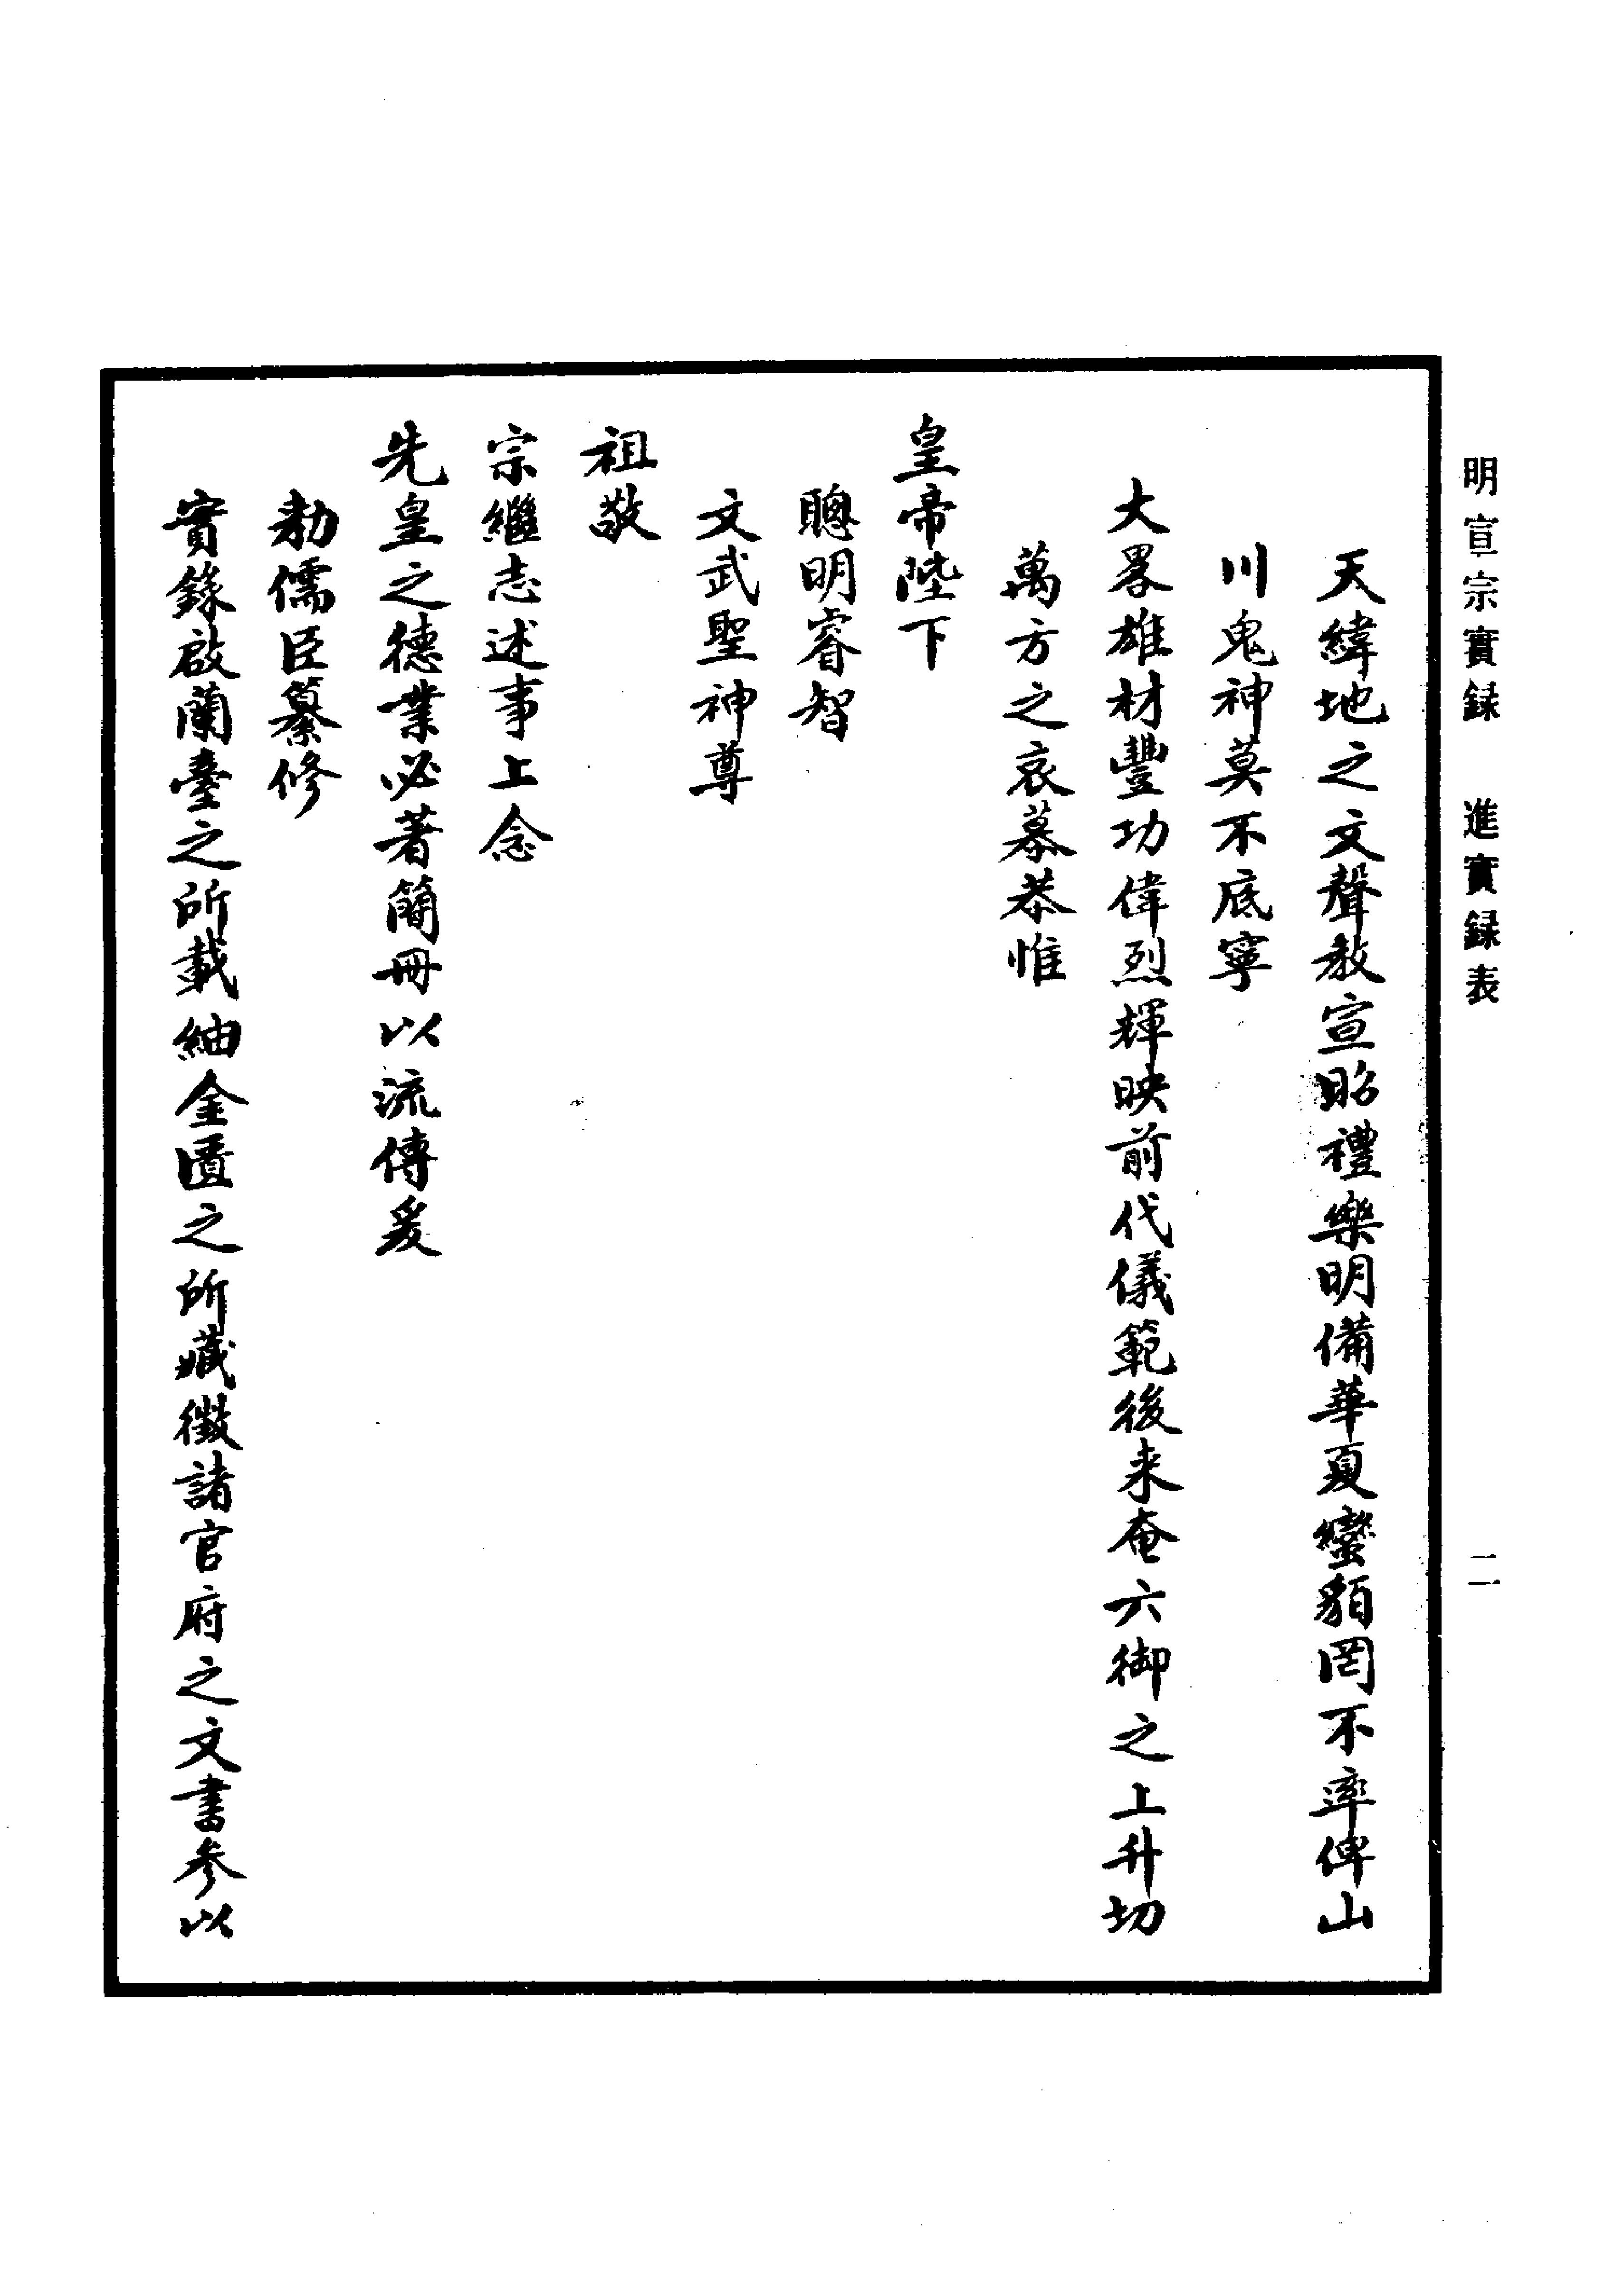 明宣宗實録　進實録表　二
天緯地之文聲教宣昭禮樂明備華夏蠻貊罔不率俾山
川鬼神莫不底寧
大畧雄材豐功偉烈輝映前代儀範後来奄六御之上升切
萬方之哀慕恭惟
皇帝陛下
聰明睿智
文武聖神尊
祖敬
宗繼志述事上念
先皇之德業必著簡冊以流傳爰
勑儒臣纂修
實錄啟蘭臺之所載紬金匱之所藏徵諸官府之文書參以